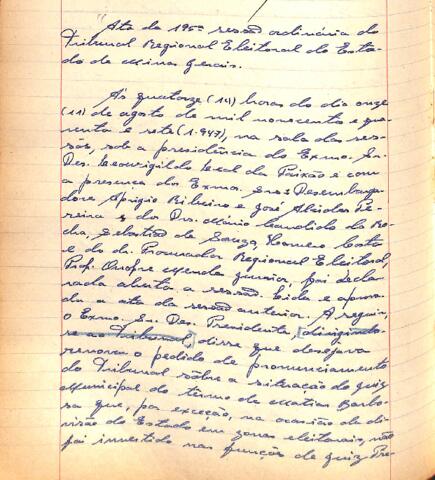 Ata da 195ª sessão ordinária do
Tribunal Regional Eleitoral do Esta-
do de Minas Gerais.
Às quatorze (14) horas do dia onze
(11) de agosto de mil novecentos e qua-
renta e sete (1.947), na sala das ses-
sões, sob a presidência do Exmo. Sr.
Des. Leovigildo Leal da Paixão e com
a presença dos Exmos. Snrs. Desembarga-
dores Aprigio Ribeiro e José Alcides Pe-
reira e dos Drs. Mário Candido da Ro-
cha, Sebastião de Souza, Homero Costa
e do dr. Procurador Regional Eleitoral,
Prof. Onofre Mendes Junior, foi decla-
rada aberta a sessão. Lida e aprova-
da a ata da sessão anterior. A seguir,
o Exmo. Sr. Des. Presidente, dirigindo-
se ao Tribunal, disse que desejava
renovar o pedido de pronunciamento
do Tribunal sôbre a situação do juiz
Municipal do termo de Matias Barbo-
sa que, por exceção, na ocasião da di-
visão do Estado em zonas eleitorais, não
foi investido nas funções de juiz Pre-